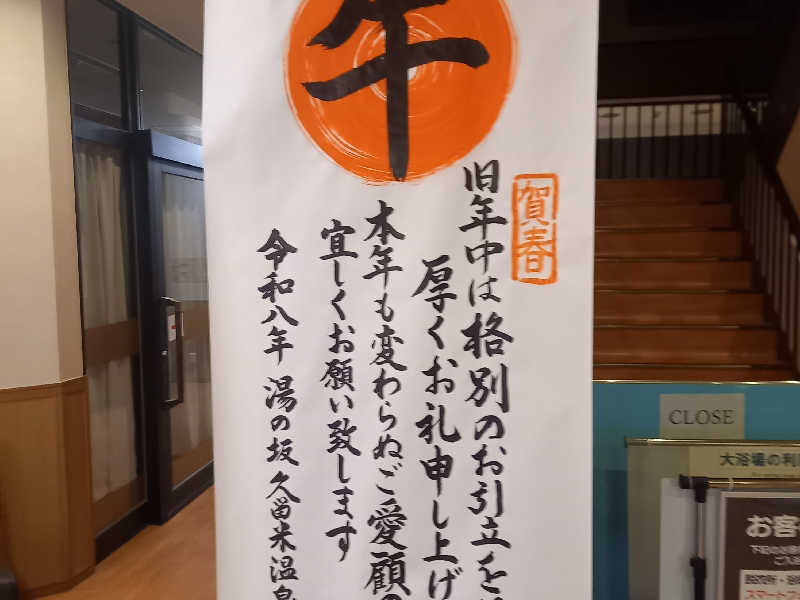 午
賀春
旧年中は格別のお引立を
厚くお礼申し上げ
本年も変わらぬご愛顧の
宜しくお願い致します
令和八年 湯の坂久留米温泉
CLOSE
大浴場の利
お客